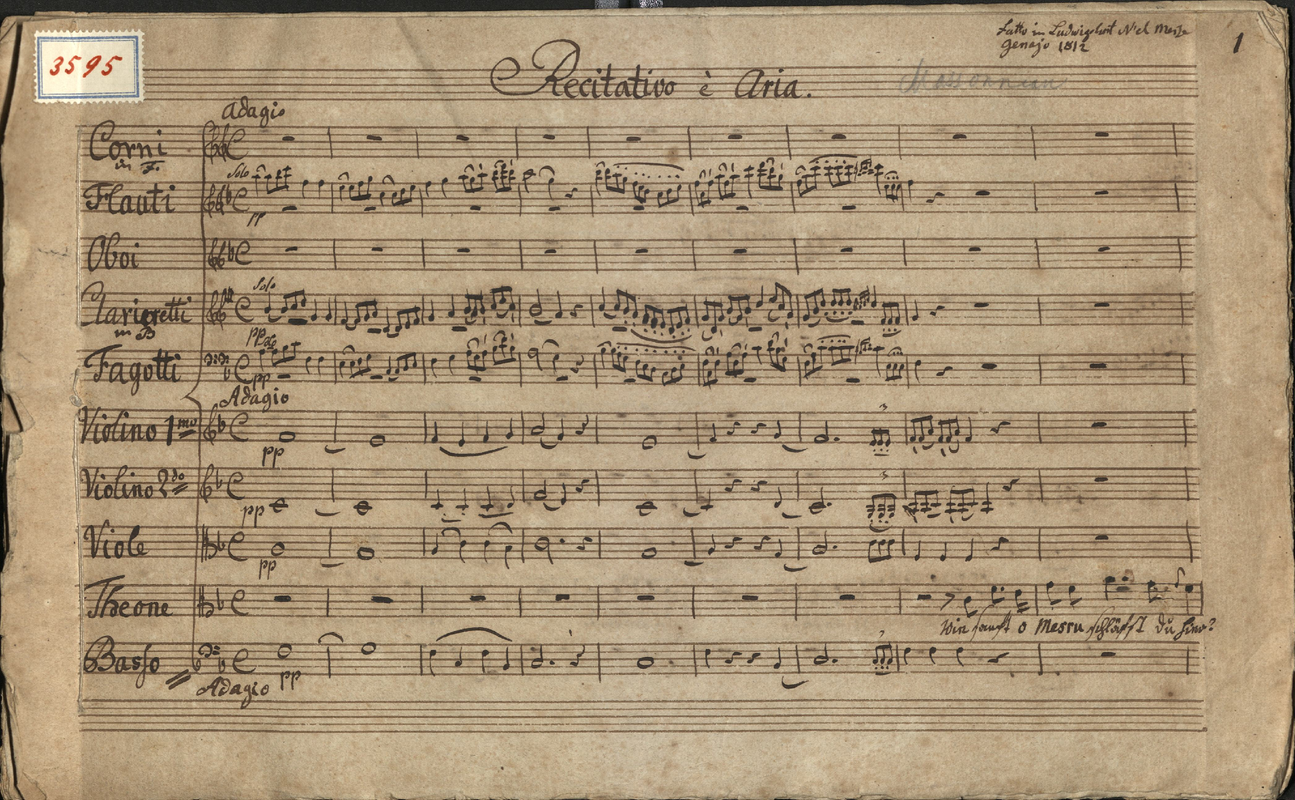 3595
Fatto in Ludwigslust Nel Mese
genajo 1812
1
Recitativo è Aria.
Adagio
Corni
in F.
Solo
Flauti
pp
Oboi
Solo
Clarinetti
in B
pp
Fagotti
pp
Adagio
Violino 1mo
pp
3
Violino 2do
pp
3
Viole
pp
Theone
wie sanft o Mesru schläfst du hier?
Basso
3
Adagio pp